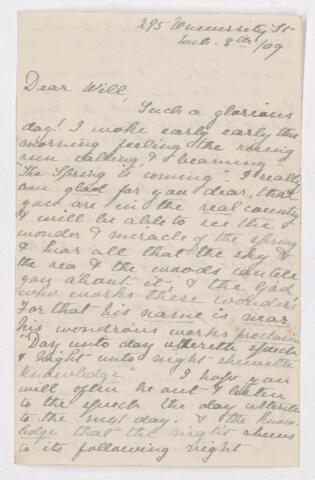 295 University St.
Feb. 8th/09
Dear Will,
Such a glorious
day! I woke early early this
morning feeling the rising
sun calling & beaming
"The Spring is coming". I really
am glad for you dear, that
you are in the real country
& will be able to see the
wonder & miracle of the spring
& hear all that the sky &
the sea & the woods can tell
you about it, & the God
who works these wonders.
For that his name is near
his wondrous works proclaim
"Day unto day uttereth speech
& Night unto night sheweth
knowledge" I hope you
will often be out & listen
to the speech the day utters
to the next day. & the know-
ledge that the night shews
to its following night